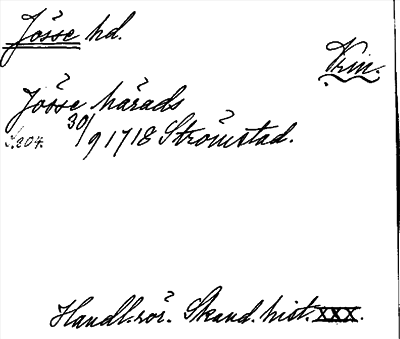 Jösse hd.
Vrm.
Jösse härads
S.204. 30/9 1718 Strömstad.
Handl. rör. Skand. hist. XXX.